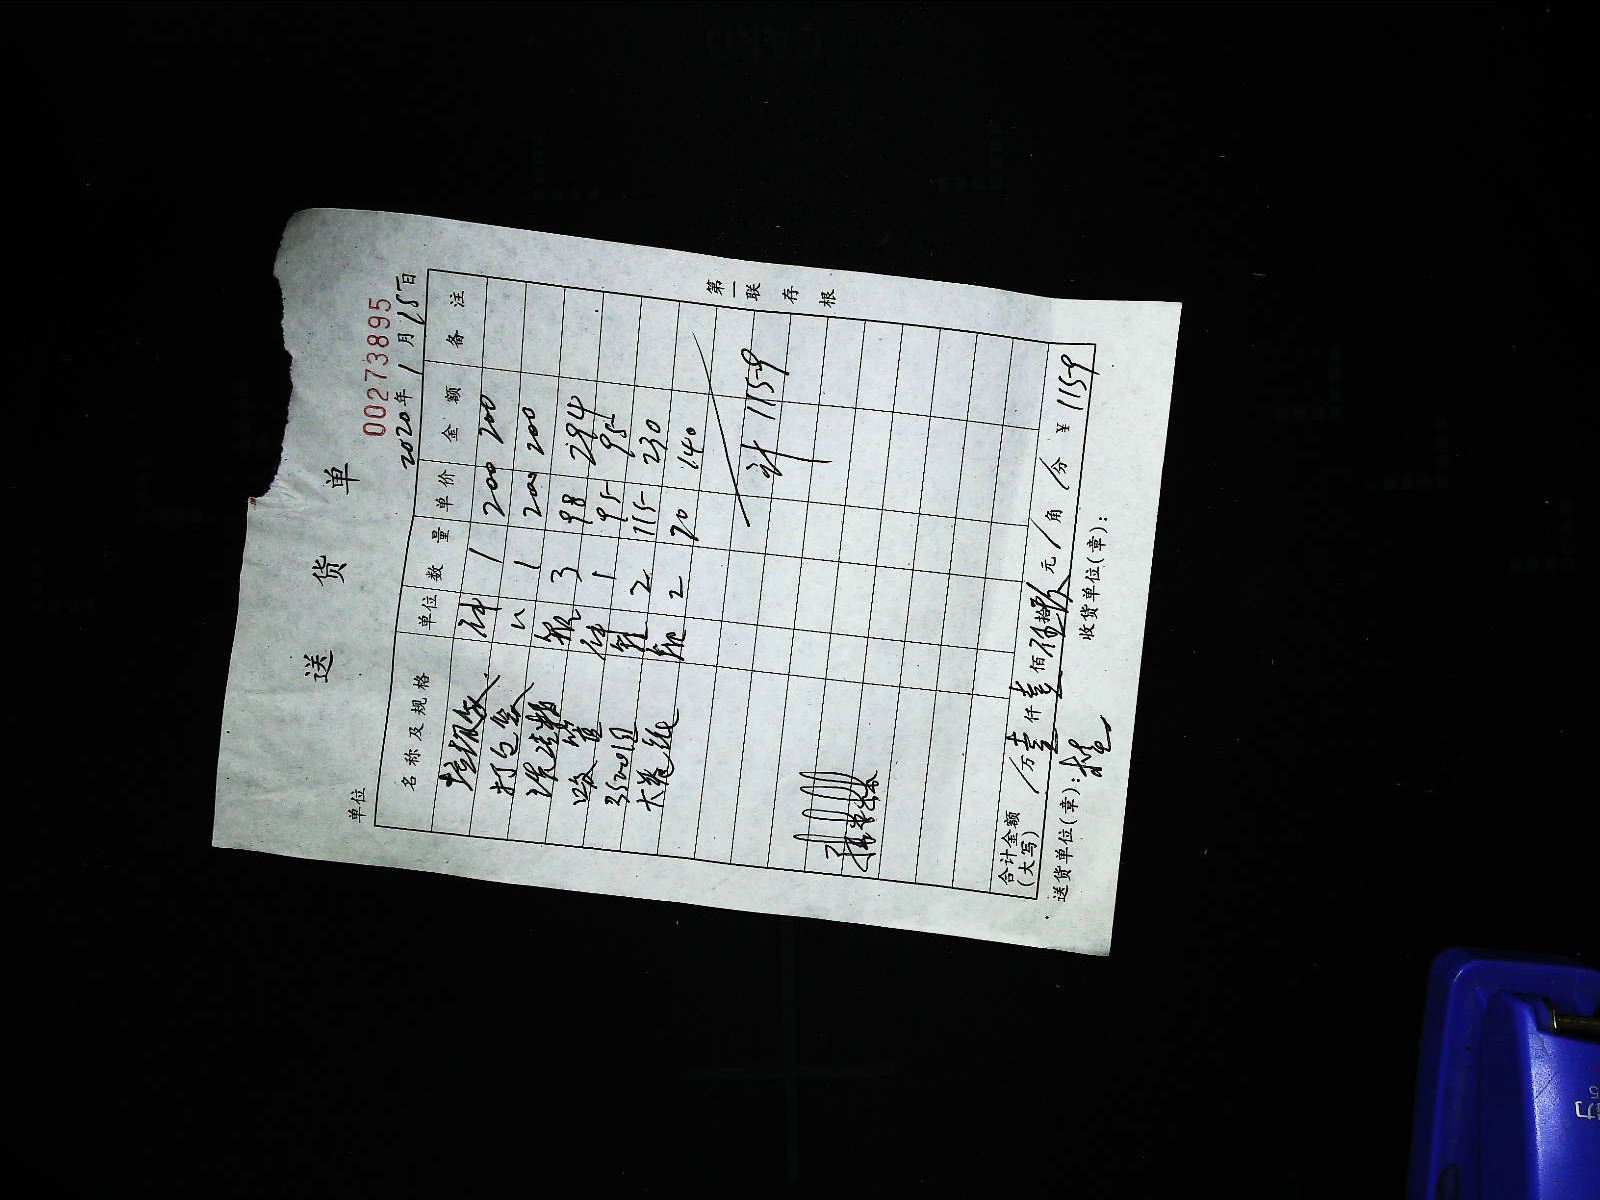 送 货 单
00273895
单位
2020年 1 月 15日
名称及规格 单位 数量 单价 金额 备注
垃圾袋 件 1 200 200
打包袋 〃 1 200 200
洗洁精 3 98 294
吸管 件 1 95 95
350 2 115 230
大卷纸 2 70 140
计 1159
合计金额(大写) / 万 壹 仟 壹 佰 伍 拾 玖 元 / 角 / 分 ¥ 1159
送货单位(章): 收货单位(章):
第一联 存根